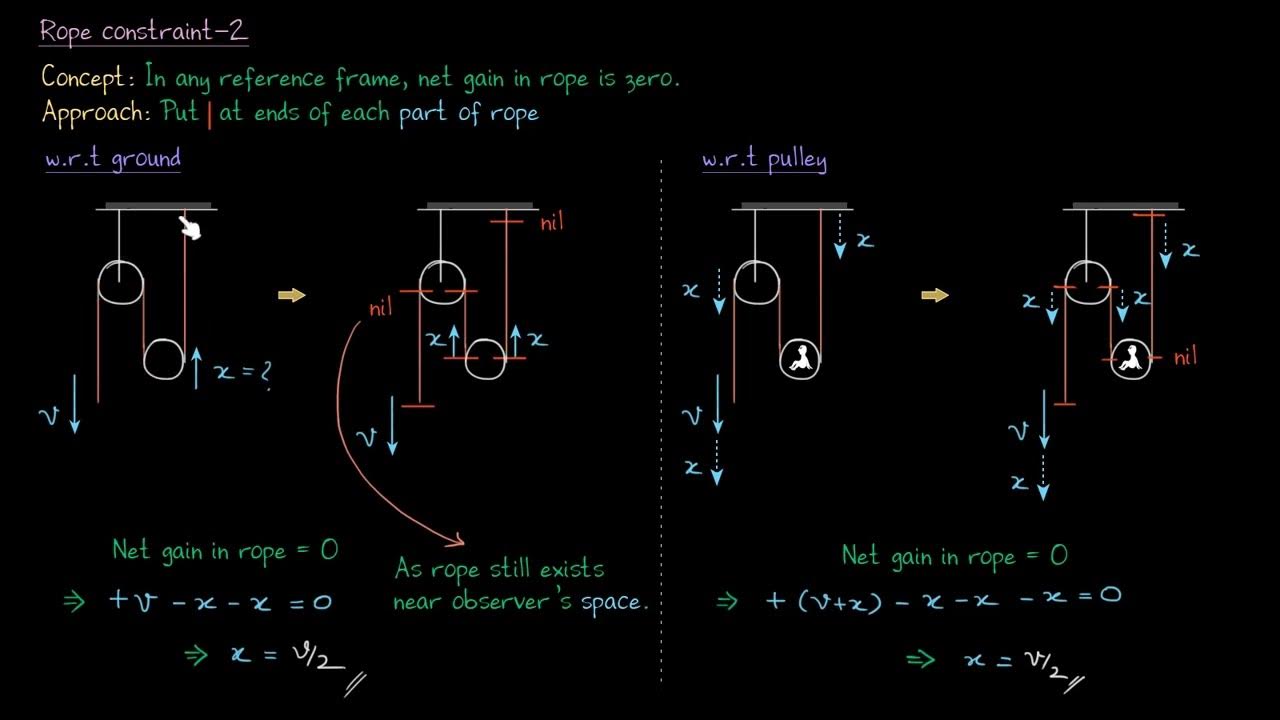 Rope constraint-2
Concept: In any reference frame, net gain in rope is zero.
Approach: Put | at ends of each part of rope
w.r.t ground
nil
nil
x
x
x = ?
v
v
Net gain in rope = 0
⇒ +v - x - x = 0
⇒ x = v/2
As rope still exists
near observer's space.
w.r.t pulley
x
x
x
x
x
nil
v
x
v
x
Net gain in rope = 0
⇒ + (v+x) - x - x - x = 0
⇒ x = v/2